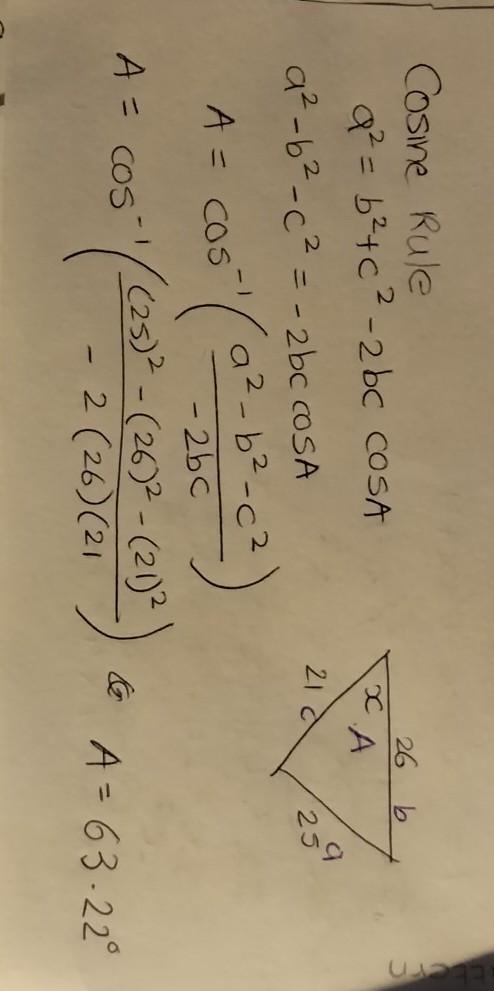 Cosine Rule
a² = b² + c² - 2bc cosA
a² - b² - c² = -2bc cosA
A = cos⁻¹ ( a² - b² - c² / -2bc )
A = cos⁻¹ ( (25)² - (26)² - (21)² / - 2 (26)(21 ) A = 63.22°
26 b
x A
21 c
25 a